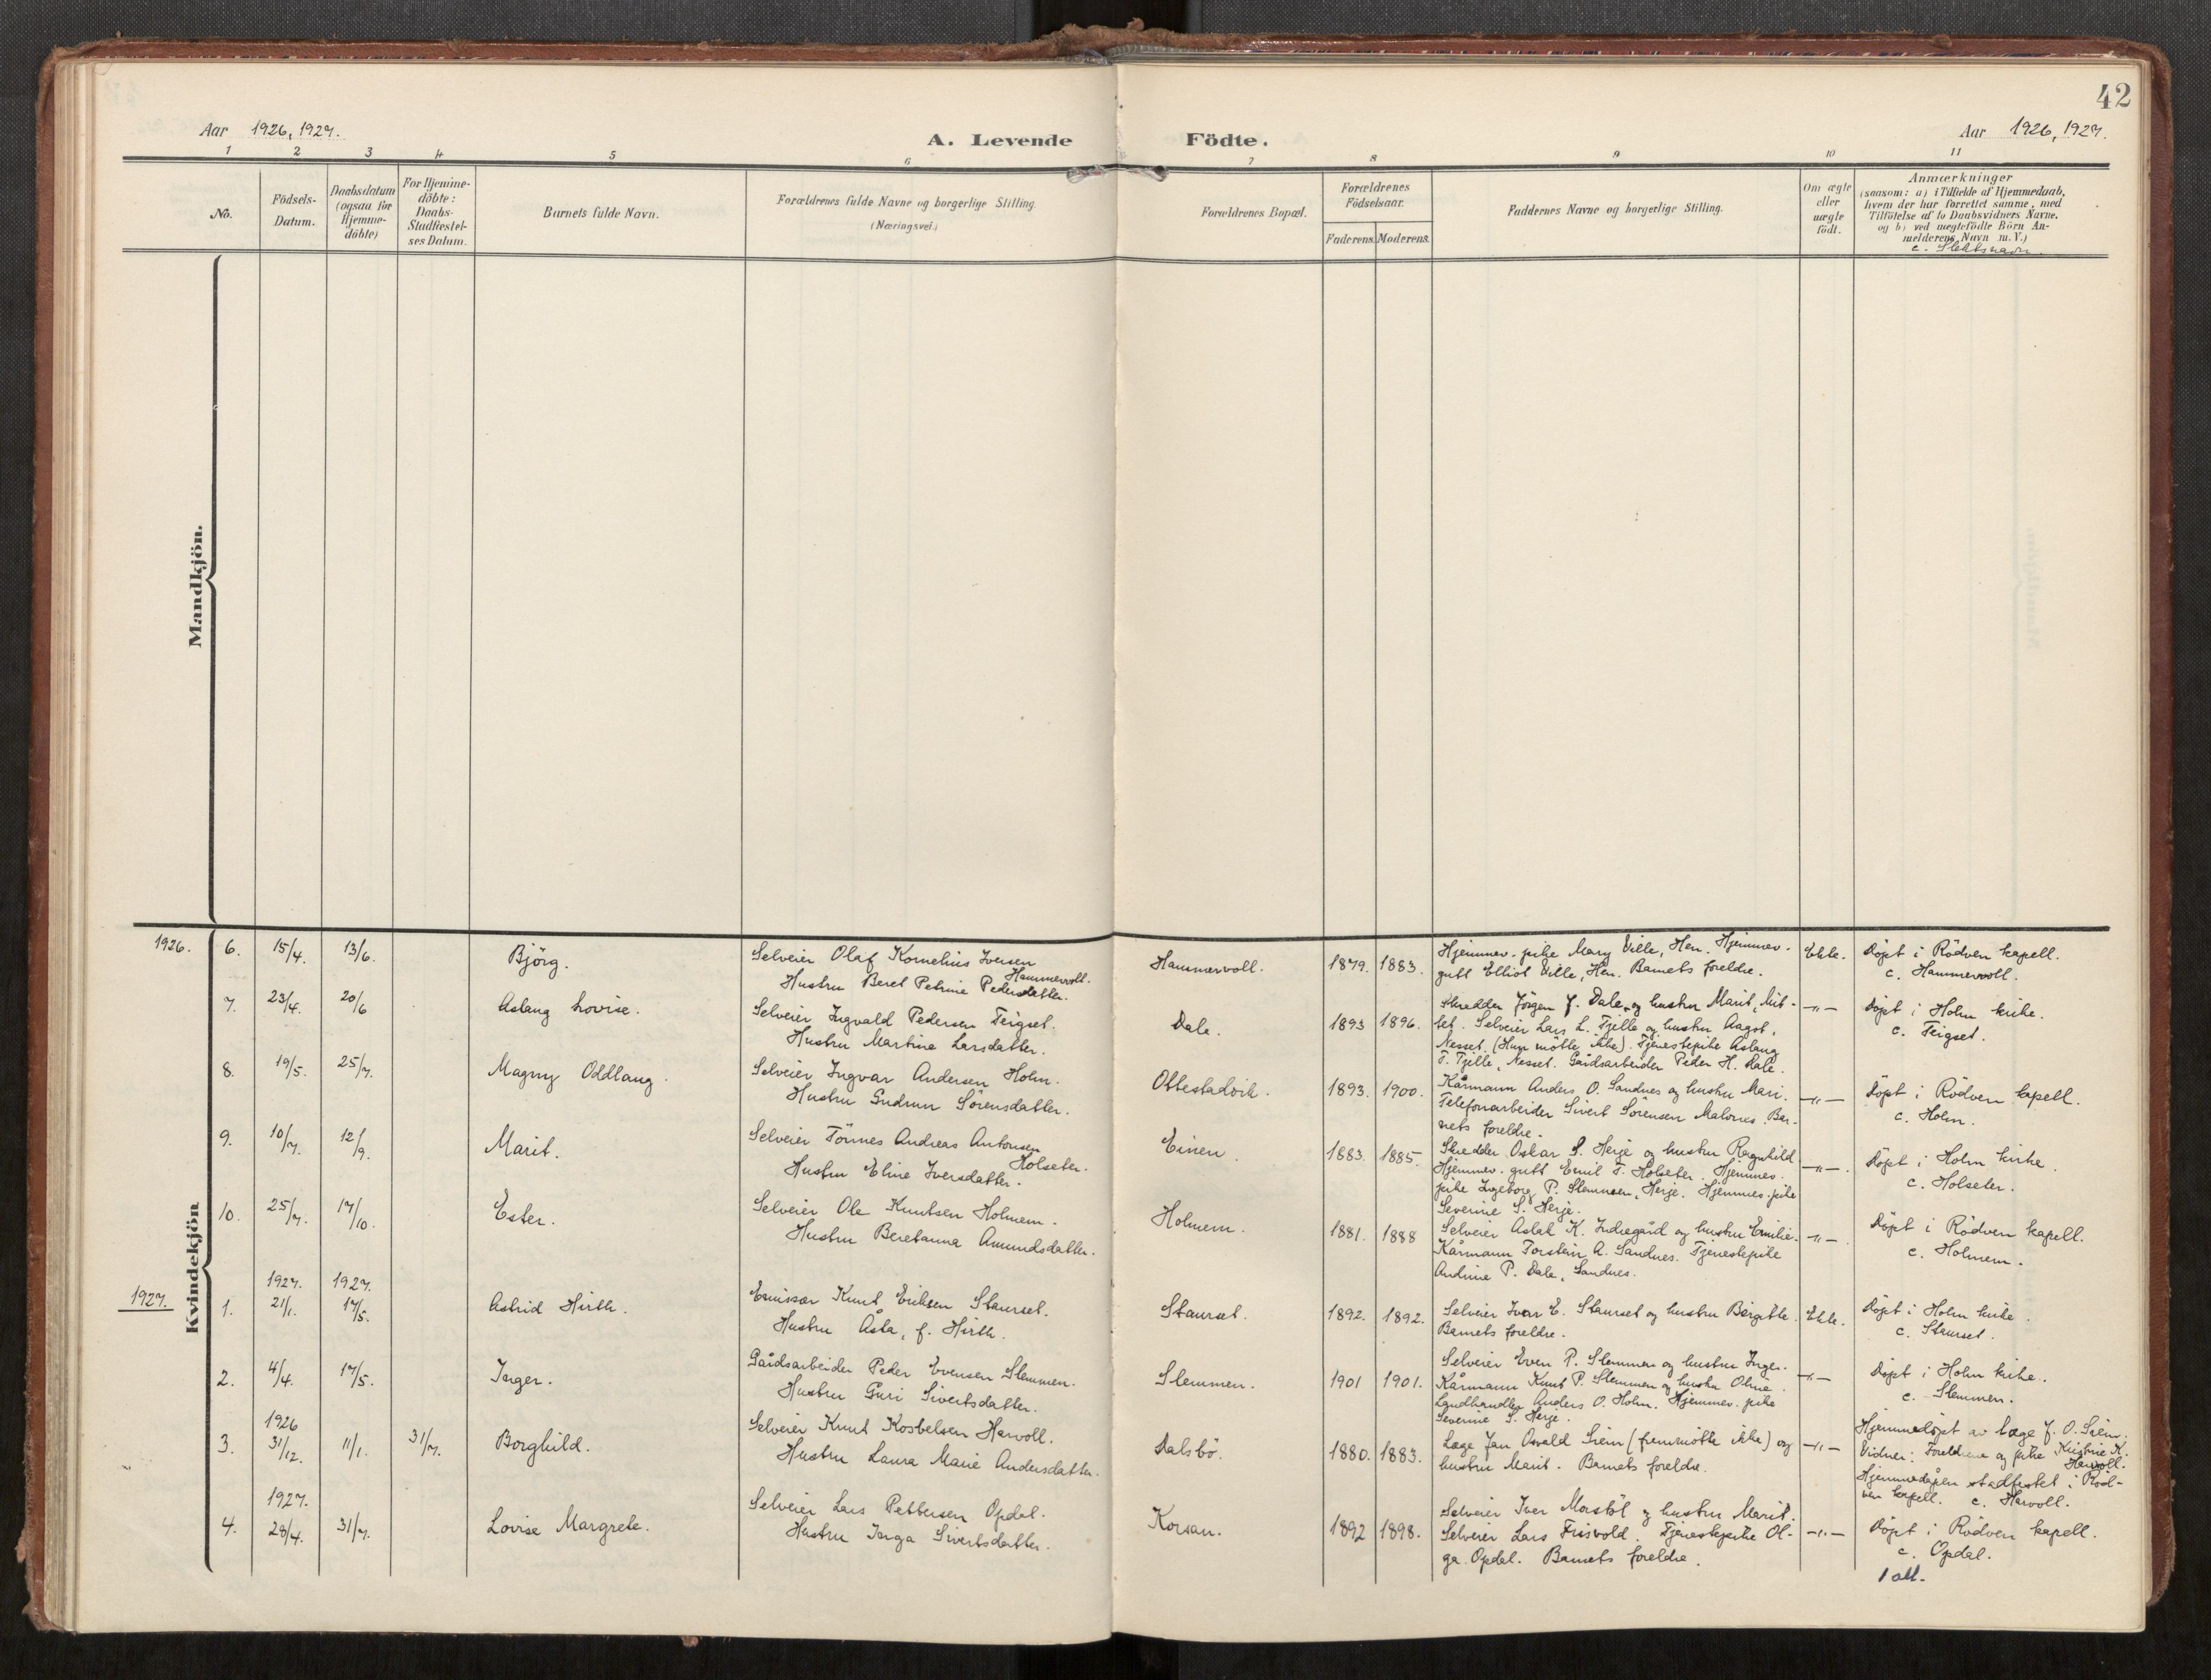 42
Aar 1926, 1927.
A. Levende Födte.
Aar 1926, 1927.
1 2 3 4 5 6 7 8 9 10 11
No.
Födsels-
Datum.
Daabsdatum
(ogsaa for
Hjemme-
döbte)
For Hjemme-
döbte:
Daabs-
Stadfæstel-
ses Datum.
Barnets fulde Navn.
Forældrenes fulde Navne og borgerlige Stilling
(Næringsvei.)
Forældrenes Bopæl.
Forældrenes
Födselsaar.
Faderens. Moderens.
Faddernes Navne og borgerlige Stilling.
Om ægte
eller
uægte
födt.
Anmærkninger
(saasom: a) i Tilfælde af Hjemmedaab,
hvem der har forrettet samme, med
Tilföielse af to Daabsvidners Navne,
og b) ved uægtefödte Börn An-
melderens Navn m. V.)
c. Slektsnavn.
Mandkjön.
Kvindekjön
1926. 6. 15/4. 13/6.
Björg.
Selveier Olaf Kornelius Iversen
Hammervoll.
Hustru Beret Petrine Pedersdatter.
Hammervoll.
1879. 1883.
Hjemmev. pike Mary Ville, Hen. Hjemmev.
gutt Elliot Ville, Hen. Barnets foreldre.
Ekte.
Döpt i Rödven kapell.
c. Hammervoll.
7. 23/4. 20/6
Aslaug Lovise.
Selveier Ingvald Pedersen Teigset.
Hustru Martine Larsdatter.
Dale.
1893 1896.
Skredder Jörgen J. Dale og hustru Marit, Mit-
tet. Selveier Lars L. Tjelle og hustru Aagot,
Nesset. (Hun mötte ikke). Tjenestepike Aslaug
T. Tjelle, Nesset. Gårdsarbeider Peder H. Dale.
—"—
Döpt i Holm kirke.
c. Teigset.
8. 19/5. 25/7.
Magny Oddlaug.
Selveier Ingvar Andersen Holm.
Hustru Gudrun Sörensdatter.
Ottestadvik.
1893. 1900.
Kårmann Anders O. Sandnes og hustru Mari.
Telefonarbeider Sivert Sörensen Malones. Bar-
nets foreldre.
—"—
Döpt i Rödven kapell.
c. Holm.
9. 10/7. 12/9.
Marit.
Selveier Tönnes Andreas Antonsen
Holseter.
Hustru Eline Iversdatter.
Einen.
1883. 1885.
Skredder Oskar S. Herje og hustru Ragnhild
Hjemmev. gutt Emil T. Holseter. Hjemmev.
pike Ingeborg P. Slemmen, Herje. Hjemmev. pike
Severine S. Herje.
—"—
Döpt i Holm kirke.
c. Holseter.
10. 25/7. 17/10.
Ester.
Selveier Ole Knutsen Holmem.
Hustru Beretanna Amundsdatter.
Holmem.
1881. 1888
Selveier Aslak K. Indregård og hustru Emilie.
Kårmann Torstein A. Sandnes. Tjenestepike
Andrine P. Dale, Sandnes.
—"—
Döpt i Rödven kapell.
c. Holmem.
1927. 1927. 1927.
1. 21/1. 17/5.
Astrid Hirth.
Emissær Knut Eriksen Staurset.
Hustru Åsta, f. Hirth.
Staurset.
1892. 1892.
Selveier Ivar E. Staurset og hustru Birgitte.
Barnets foreldre.
Ekte.
Döpt i Holm kirke.
c. Staurset.
2. 4/4. 17/5.
Inger.
Gårdsarbeider Peder Evensen Slemmen.
Hustru Guri Sivertsdatter.
Slemmen.
1901 1901.
Selveier Even P. Slemmen og hustru Inger.
Kårmann Knut P. Slemmen og hustru Oline.
Landhandler Anders O. Holm. Hjemmev. pike
Severine S. Herje.
—"—
Döpt i Holm kirke.
c. Slemmen.
1926
3. 31/12. 11/1. 31/7.
Borghild.
Selveier Knut Kosbelsen Harvoll.
Hustru Laura Marie Andersdatter.
Dalsbö.
1880. 1883.
Læge Jan Osvald Sriem (fremmötte ikke) og
hustru Marit. Barnets foreldre.
—"—
Hjemmedöpt av læge J. O. Sriem.
Vidner: Foreldrene og pike Kristine K.
Harvoll.
Hjemmedåpen stadfestet i Röd-
ven kapell. c. Harvoll.
1927.
4. 28/4. 31/7.
Lovise Margrete.
Selveier Lars Pettersen Opdal.
Hustru Inga Sivertsdatter.
Korsan.
1892 1898.
Selveier Iver Morstöl og hustru Marit.
Selveier Lars Frisvold. Tjenestepike Ol-
ga Opdal. Barnets foreldre.
—"—
Döpt i Rödven kapell.
c. Opdal.
1 att.